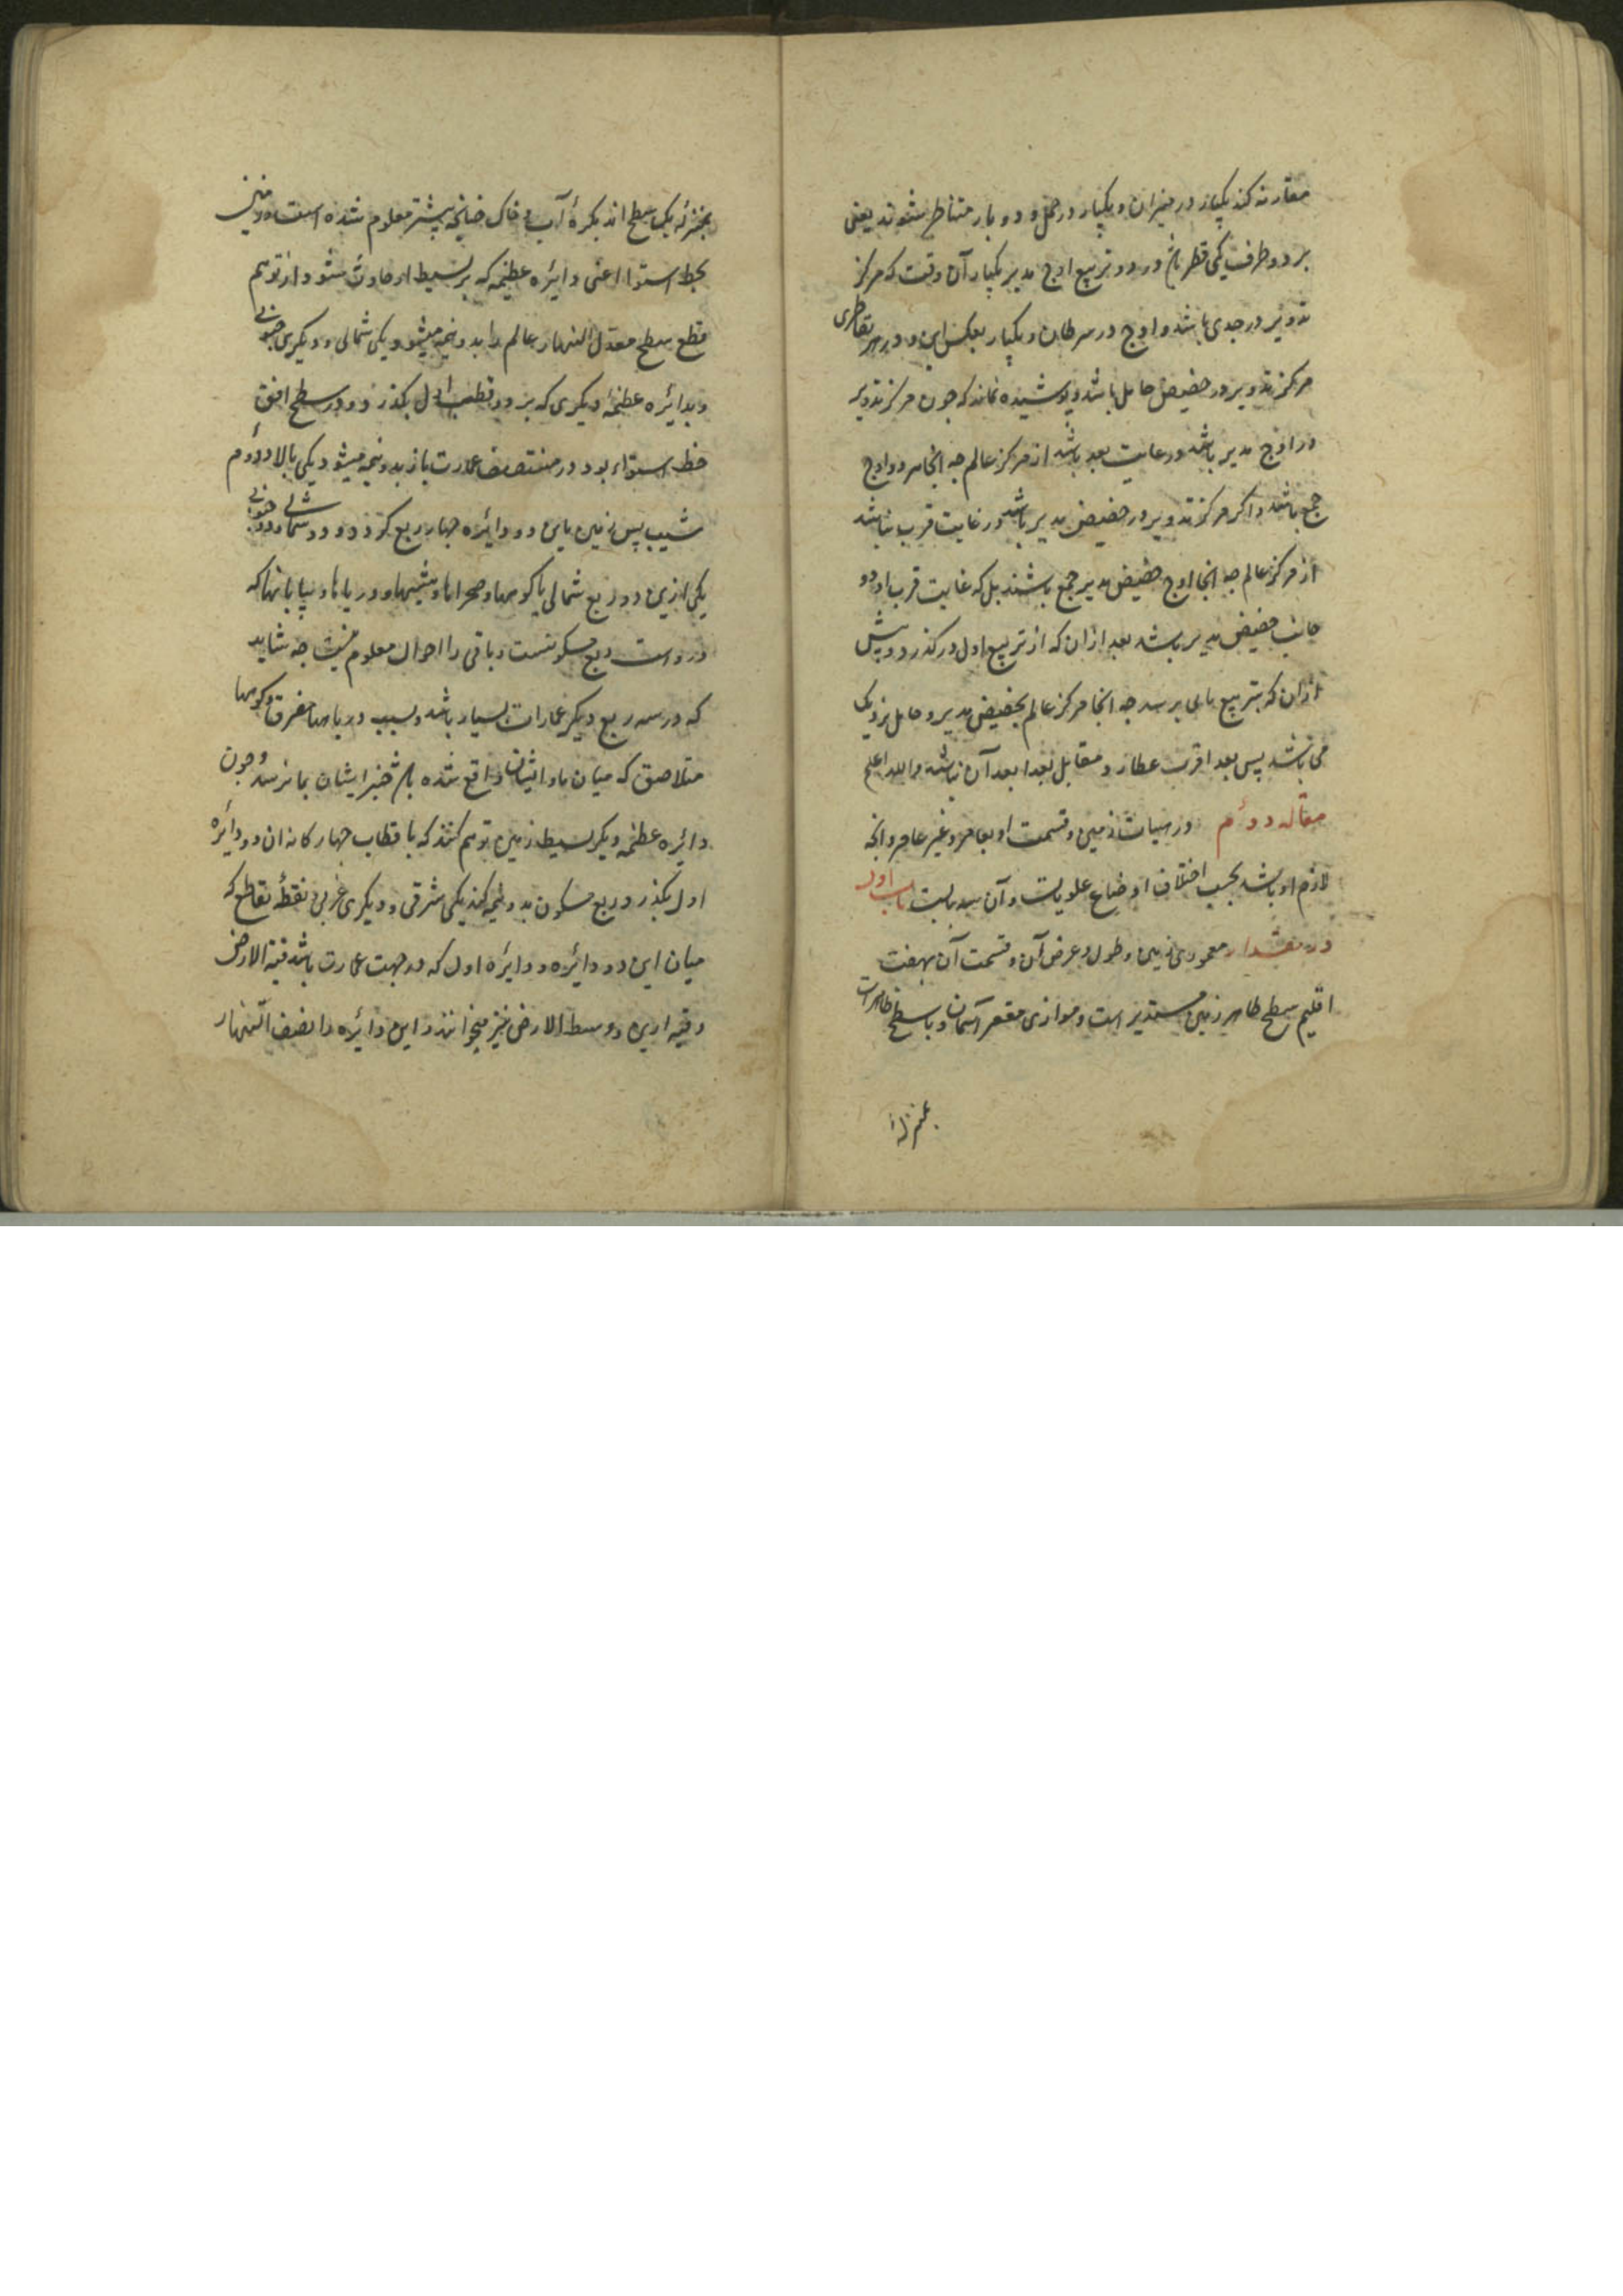 مقارنه کند یکبار در میزان و یکبار در حمل و دو بار متناظر شوند یعنی
بر دو طرف یکی قطر باشد در دو تربیع اوج مدیر یکبار آن وقت که مرکز
تدویر در جدی باشد و اوج در سرطان و یکبار بعکس این و در هر تقاطری
مرکز تدویر در حضیض حامل باشد و پوشیده نماند که چون مرکز تدویر
در اوج مدیر باشد در غایت بعد باشد از مرکز عالم چه انجا هر دو اوج
جمع باشد و اکر مرکز تدویر در حضیض مدیر باشد در غایت قرب نباشد
از مرکز عالم چه انجا اوج حضیض مدیر جمع باشند بل که غایت قرب او دو
جانب حضیض مدیر باشد بعد ازان که از تربیع اول درکذرد و پیش
ازان که بتربیع برسد چه انجا مرکز عالم بحضیض مدیر و حامل نزدیک
می باشد پس بعد اقرب عطارد مقابل بعد ابعد آن نباشد والله اعلم
مقاله دوم در هیات زمین و قسمت او بعامر و غیر عامر و انچه
لازم او باشد بحسب اختلاف اوضاع علویات و آن سه بابست باب اول
در مقدار معموری زمین و طول و عرض آن و قسمت آن بهفت
اقلیم سطح ظاهر زمین مستدیر است و موازی مقعر آسمان و با سطح ظاهر آب
بمنزلهٔ
بمنزلهٔ یک سطح اند بکرهٔ آب و خاک چنانچه پیشتر معلوم شده است و زمین
بخط استوا اعنی دایره عظیمه که بر بسیط او حادث شود از توهم
قطع سطح معدل النهار عالم را بدو نیمه میشود یکی شمالی و دیکری جنوبی
و بدایره عظیمهٔ دیکری که بر دو قطب اول بکذرد و در سطح افق
خط استواء بود در منتصف عمارت باز بدو نیمه میشود یکی بالا و دوم
شیب پس زمین باین دو دایره چهار ربع کردد دو شمالی و دو جنوبی
یکی ازین دو ربع شمالی با کوهها و صحراها و بیشها و دریاها و بیابانها که
دروست ربع مسکونست و باقی را احوال معلوم نیست چه شاید
که در سه ربع دیکر عمارات بسیار باشد و بسبب دریاهاء مغرق و کوهها
متلاصق که میان ما و ایشان واقع شده باشد خبر ایشان بما نرسد و چون
دایره عظیمه دیکر بر بسیط زمین توهم کنند که با قطاب چهارکانه ان دو دایره
اول بکذرد ربع مسکون بدو نیمه کند یکی شرقی و دیکری غربی نقطهٔ تقاطع که
میان این دو دایره و دایره اول که در جهت عمارت باشد قبة الارض
و قبه ارین و وسط الارض نیز میخوانند و این دایره را نصف النهار